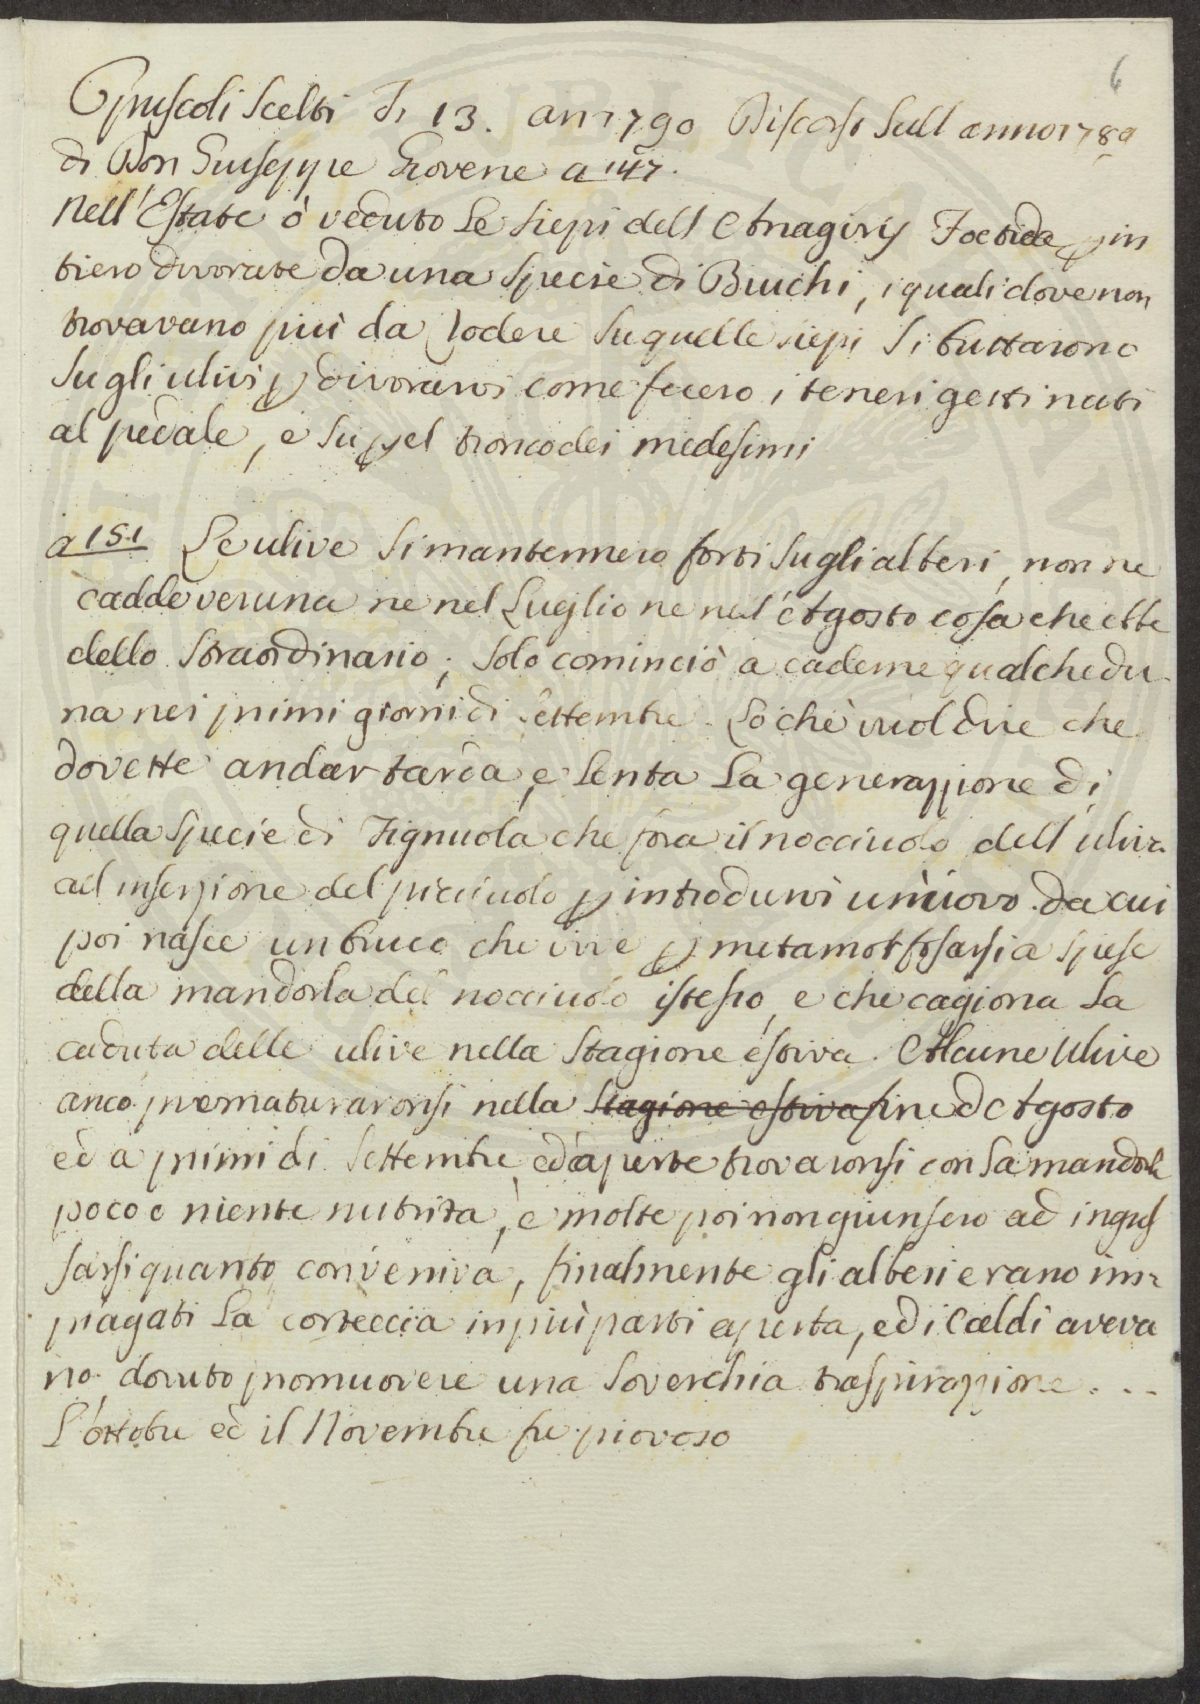 6
Opuscoli Scelti T. 13. an 1790 Discorso Sull anno 1789
di Don Giuseppe Giovene a 147.
Nell' Estate ò veduto Le siepi dell Anagiris Foetida p in
tiero divorate da una specie di Bruchi, i quali dove non
trovavano più da rodere su quelle siepi si buttarono
sugli ulivi p divorarvi come fecero i teneri getti nati
al pedale, e su pel tronco dei medesimi
a 151 Le ulive si mantennero forti sugli alberi, non ne
cadde veruna ne nel Luglio ne nel' Agosto cosa che ebbe
dello straordinario; solo cominciò a caderne qualchedu-
na nei primi giorni di settembre. Lo che vuol dire che
dovette andar tarda, e lenta La generazzione di
quella specie di Tignuola che fora il nocciuolo dell uliva
all inserzione del picciuolo p introdurvi un uovo da cui
poi nasce un bruco che vive p metamorfosarsi a spese
della mandorla del nocciuolo istesso, e che cagiona La
caduta delle ulive nella stagione estiva. Alcune Ulive
anco prematuraronsi nella stagione estiva fine d Agosto
ed a primi di Settembre, ed aperte trovaronsi con La mandorla
poco o niente nutrita, e molte poi non giunsero ad ingros
sarsi quanto conveniva, finalmente gli alberi erano im=
piagati La corteccia in più parti aperta, ed i Caldi aveva
no dovuto promuovere una soverchia traspirazzione...
L'ottobre ed il Novembre fu piovoso